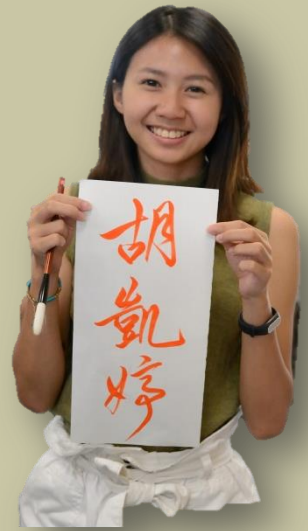 胡
凱
婷